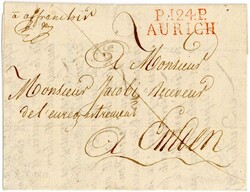 à affranchir
P.124.P.
AURICH
A Monsieur
Monsieur Jacobi Receveur
de l'enregistrement
A Emden